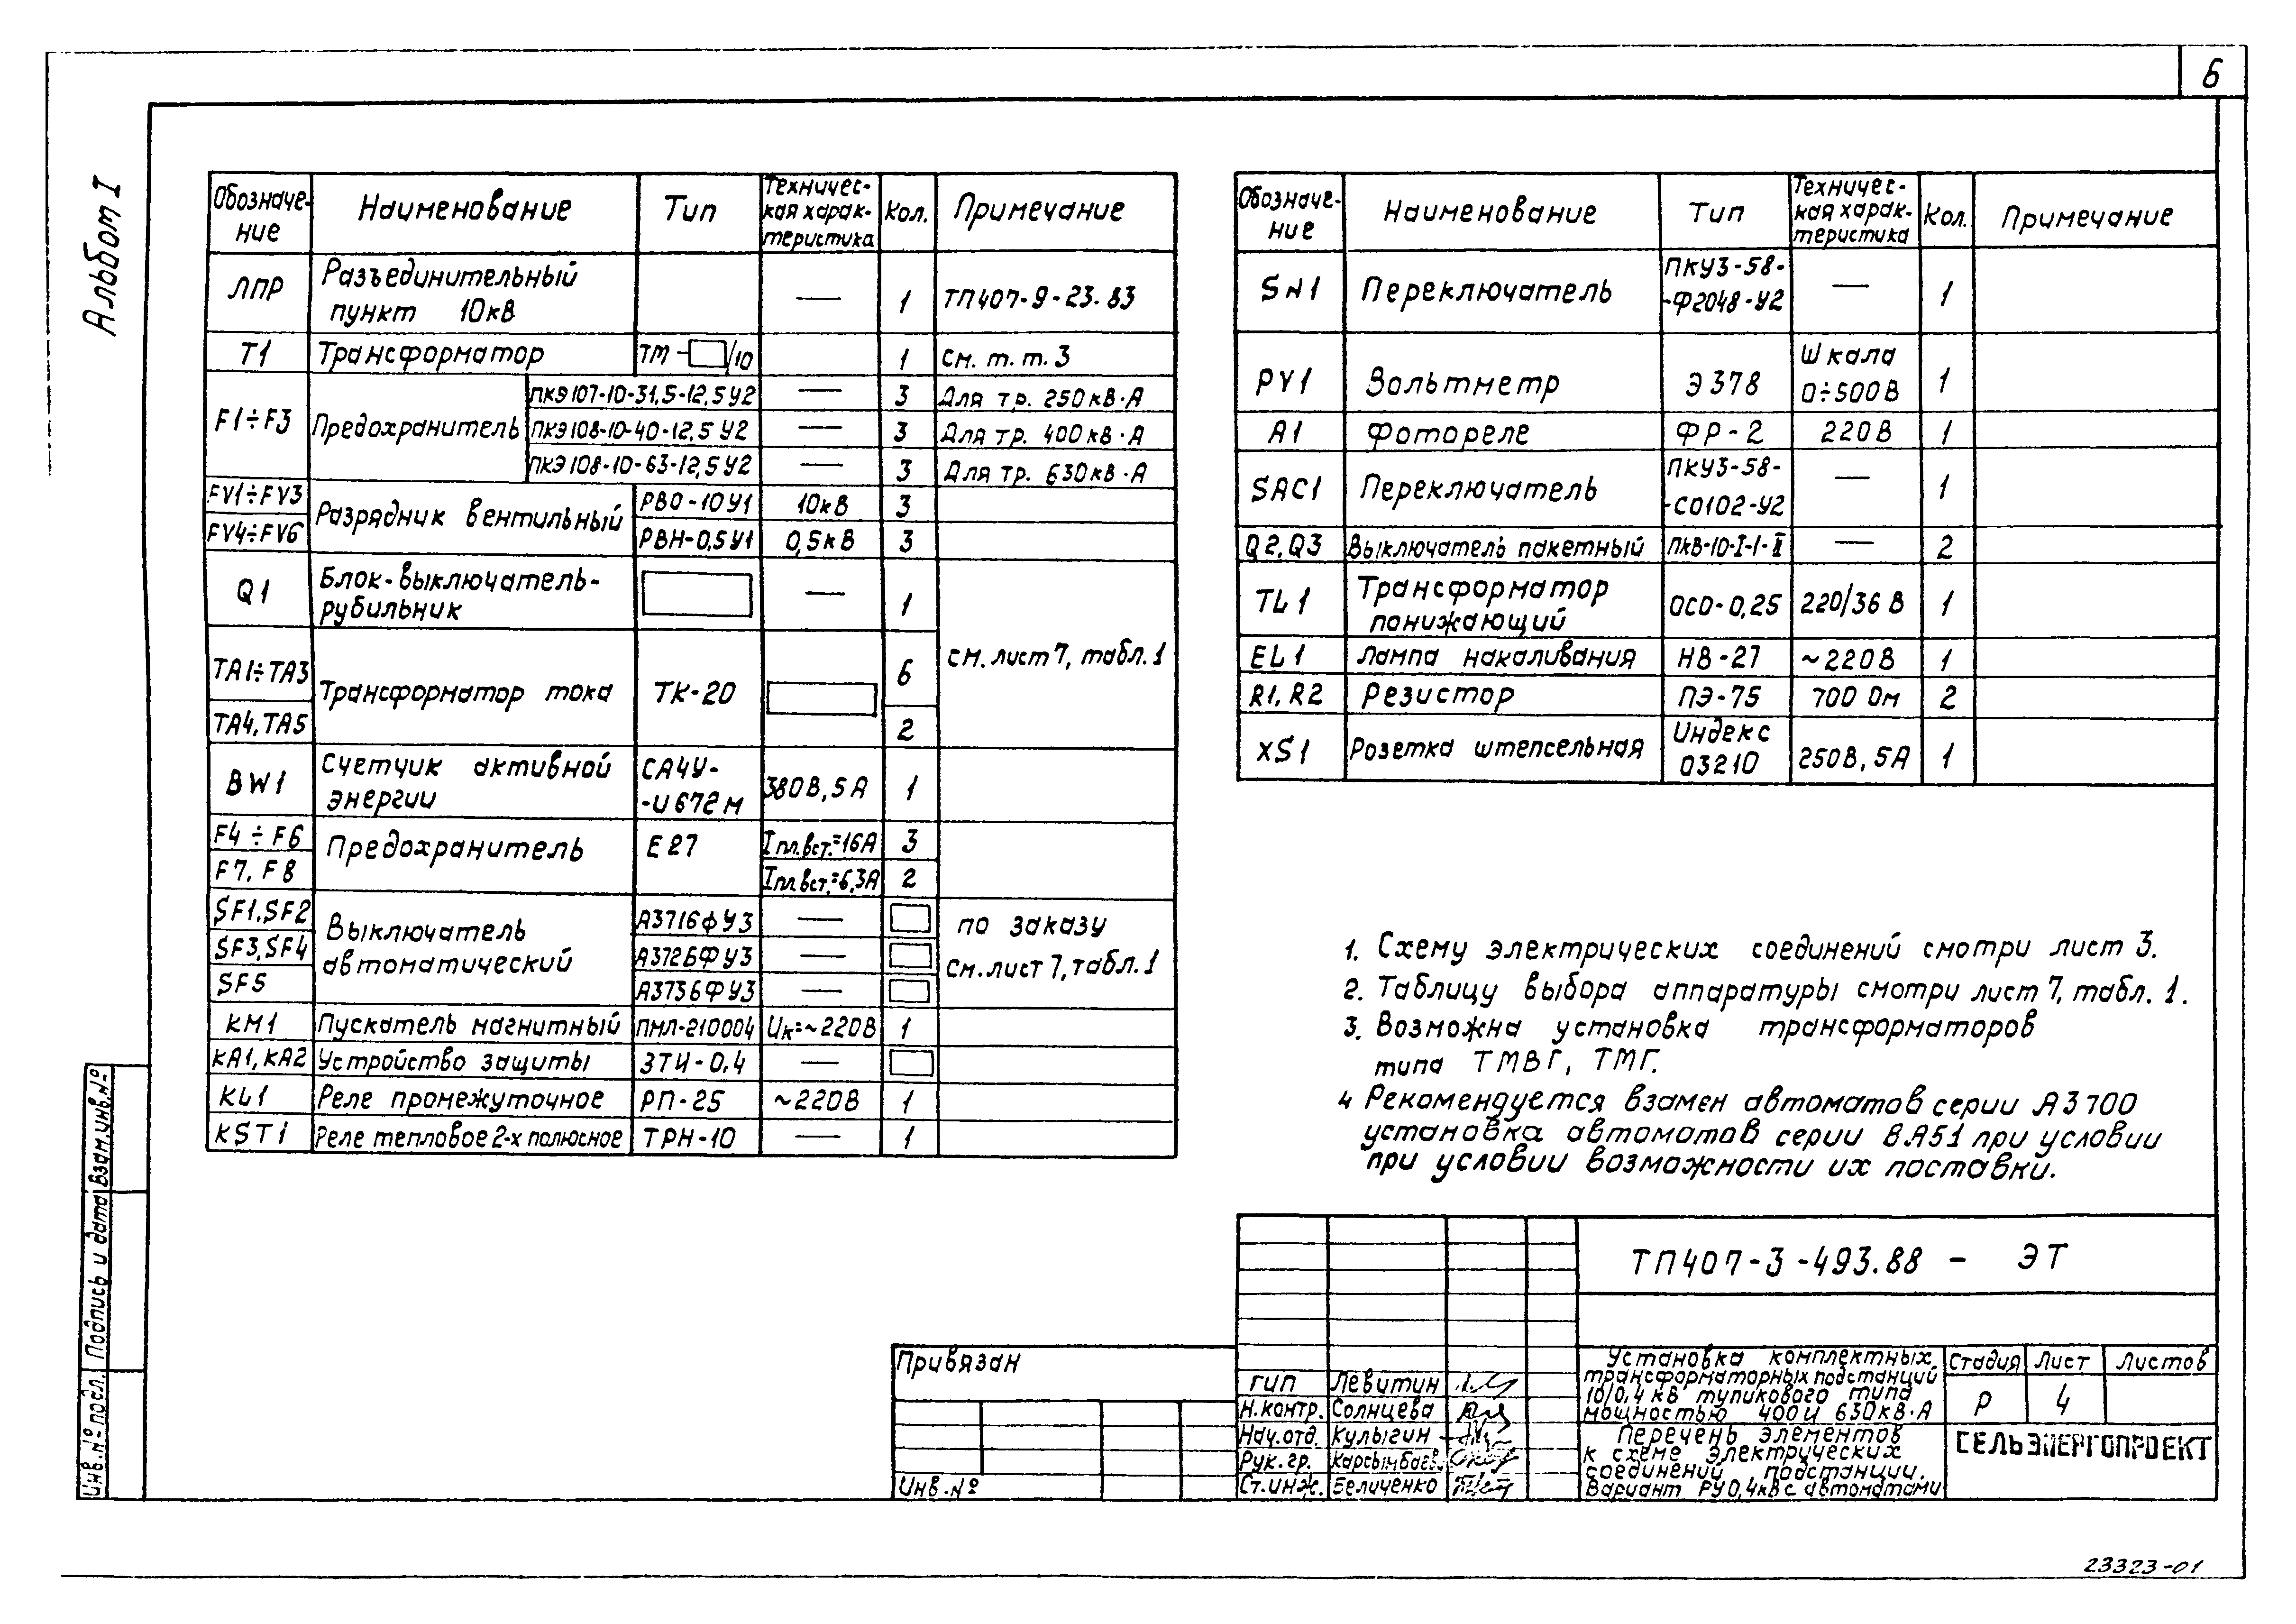 6
Альбом I
Обозначе-
ние
Наименование
Тип
Техничес-
кая харак-
теристика
Кол.
Примечание
ЛПР
Разъединительный
пункт 10кВ
—
1
ТП407-9-23.83
Т1
Трансформатор
ТМ-□/10
1
см. т. т. 3
F1÷F3
Предохранитель
ПКЭ107-10-31,5-12,5У2
—
3
Для тр. 250кВ·А
ПКЭ108-10-40-12,5 У2
—
3
Для тр. 400кВ·А
ПКЭ108-10-63-12,5У2
—
3
Для тр. 630кВ·А
FV1÷FV3
Разрядник вентильный
РВО-10У1
10кВ
3
FV4÷FV6
РВН-0,5У1
0,5кВ
3
Q1
Блок-выключатель-
рубильник
—
1
см. лист 7, табл. 1
TA1÷TA3
Трансформатор тока
ТК-20
6
TA4, TA5
2
BW1
Счетчик активной
энергии
СА4У-
-И672М
380В, 5А
1
F4÷F6
Предохранитель
Е27
Iпл.вст.=16А
3
F7, F8
Iпл.вст.=6,3А
2
SF1, SF2
Выключатель
автоматический
А3716ФУ3
—
по заказу
SF3, SF4
А3726ФУ3
—
см. лист 7, табл. 1
SF5
А3736ФУ3
—
KM1
Пускатель магнитный
ПМЛ-210004
Uк=~220В
1
KA1, KA2
Устройство защиты
ЗТИ-0,4
—
KL1
Реле промежуточное
РП-25
~220В
1
KST1
Реле тепловое 2-х полюсное
ТРН-10
—
1
Обозначе-
ние
Наименование
Тип
Техничес-
кая харак-
теристика
Кол.
Примечание
SN1
Переключатель
ПКУ3-58-
-Ф2048-У2
—
1
PV1
Вольтметр
Э378
Шкала
0÷500В
1
A1
Фотореле
ФР-2
220В
1
SAC1
Переключатель
ПКУ3-58-
-С0102-У2
—
1
Q2, Q3
Выключатель пакетный
ПКВ-10-I-1-II
—
2
TL1
Трансформатор
понижающий
ОСО-0,25
220/36 В
1
EL1
Лампа накаливания
НВ-27
~220В
1
R1, R2
Резистор
ПЭ-75
700 Ом
2
XS1
Розетка штепсельная
Индекс
03210
250В, 5А
1
1. Схему электрических соединений смотри лист 3.
2. Таблицу выбора аппаратуры смотри лист 7, табл. 1.
3. Возможна установка трансформаторов
типа ТМВГ, ТМГ.
4 Рекомендуется взамен автоматов серии А3700
установка автоматов серии ВА51 при условии
при условии возможности их поставки.
ТП407-3-493.88 - ЭТ
Привязан
Инв.№
ГИП Левитин
Н.контр. Солнцева
Нач.отд. Кулыгин
Рук.гр. Карсымбаев
Ст.инж. Беличенко
Установка комплектных
трансформаторных подстанций
10/0,4 кВ тупикового типа
мощностью 400 и 630кВ·А
Перечень элементов
к схеме электрических
соединений подстанции.
Вариант РУ0,4кВ с автоматами
Стадия Лист Листов
Р 4
СЕЛЬЭНЕРГОПРОЕКТ
Инв.№ подл. Подпись и дата Взам.инв.№
23323-01